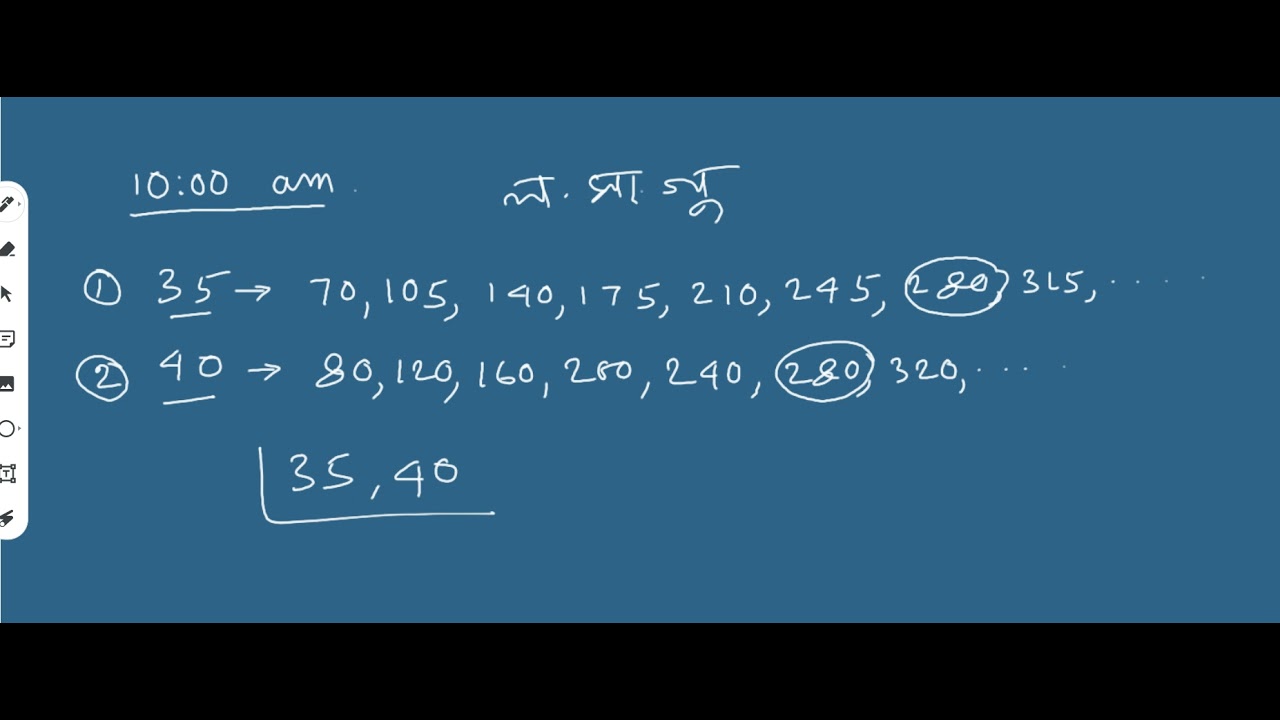 10:00 am ল. সা. গু
① 35 → 70, 105, 140, 175, 210, 245, 280, 315, .....
② 40 → 80, 120, 160, 200, 240, 280, 320, .....
35, 40